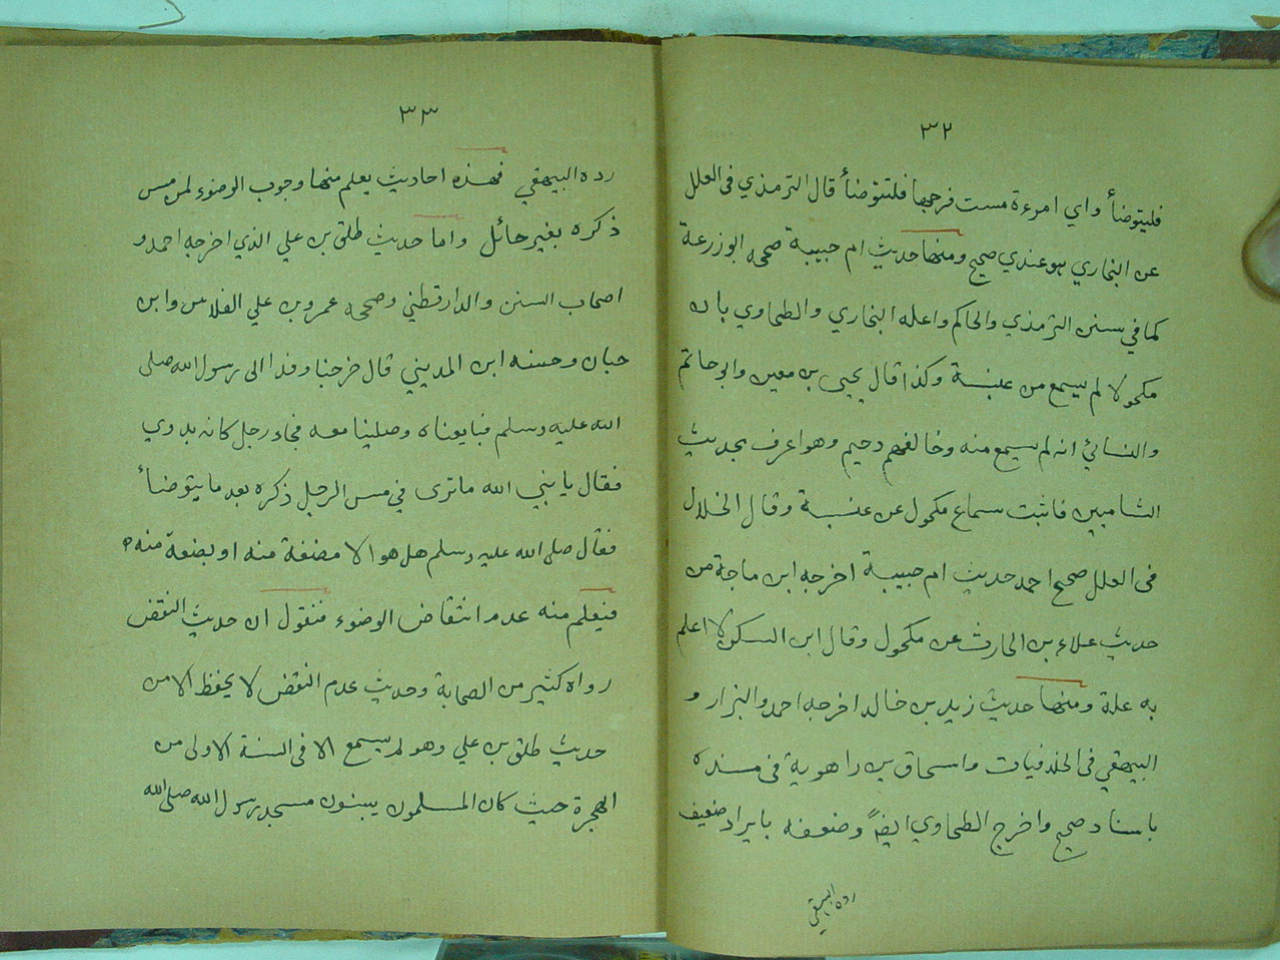 ٣٢
فليتوضأ واي امرءة مست فرجها فلتتوضأ قال الترمذي فى العلل
عن البخاري هو عندي صحيح ومنها حديث ام حبيبة صححه ابوزرعة
كما في سنن الترمذي والحاكم واعله البخاري والطحاوي بان
مكحولا لم يسمع من عنبسة وكذا قال يحيى بن معين وابوحاتم
والنسائي انه لم يسمع منه وخالفهم دحيم وهو اعرف بحديث
الشاميين فاثبت سماع مكحول عن عنبسة وقال الخلال
فى العلل صحح احمد حديث ام حبيبة اخرجه ابن ماجة من
حديث علاء بن الحارث عن مكحول وقال ابن السكن لا اعلم
به علة ومنها حديث زيد بن خالد اخرجه احمد والبزار و
البيهقي فى الخلافيات واسحاق بن راهوية فى مسنده
باسناد صحيح واخرج الطحاوي ايضاً وضعفه بايراد ضعيف
رده البيهقي
٣٣
رده البيهقي فهذه احاديث يعلم منها وجوب الوضوء لمن مس
ذكره بغير حائل واما حديث طلق بن علي الذي اخرجه احمد و
اصحاب السنن والدارقطني وصححه عمرو بن علي الفلاس وابن
حبان وحسنه ابن المديني قال خرجنا وفدا الى رسول الله صلى
الله عليه وسلم فبايعناه وصلينا معه فجاء رجل كانه بدوي
فقال يا نبي الله ماترى في مس الرجل ذكره بعد ما يتوضأ
فقال صلى الله عليه وسلم هل هو الا مضغة منه او بضعة منه
فيعلم منه عدم انتقاض الوضوء فنقول ان حديث النقض
رواه كثير من الصحابة وحديث عدم النقض لا يحفظ الا من
حديث طلق بن علي وهو لم يسمع الا فى السنة الاولى من
الهجرة حيث كان المسلمون يبنون مسجد رسول الله صلى الله